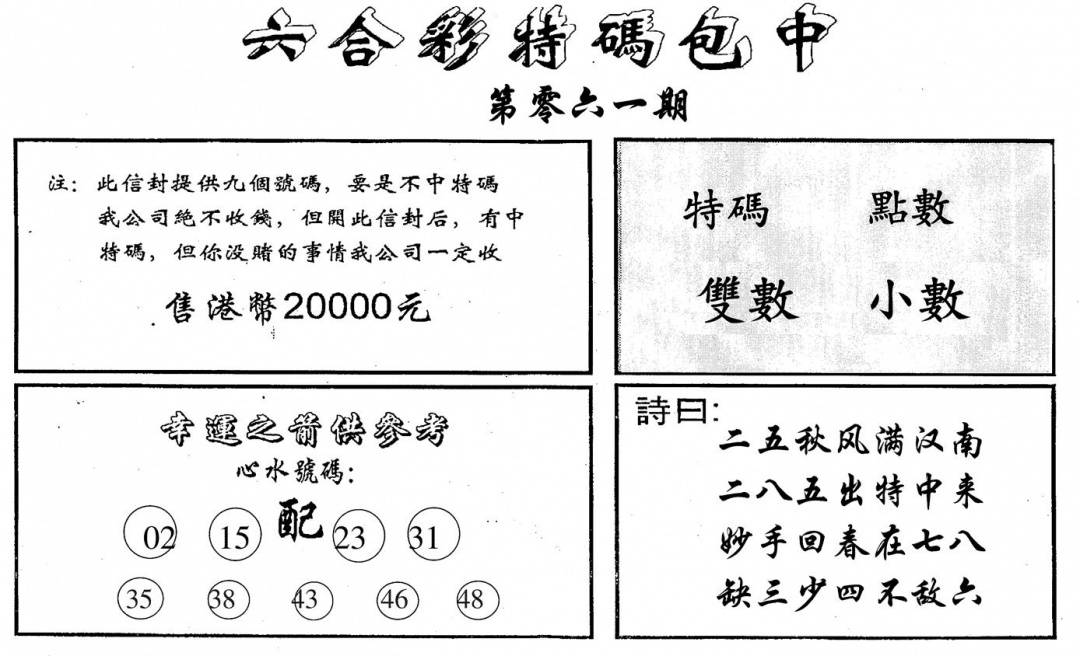 六合彩特碼包中
第零六一期
注：此信封提供九個號碼，要是不中特碼
我公司絕不收錢，但開此信封后，有中
特碼，但你没賭的事情我公司一定收
售港幣20000元
特碼 點數
雙數 小數
幸運之箭供參考
心水號碼：
02 15 配 23 31
35 38 43 46 48
詩曰：
二五秋风满汉南
二八五出特中来
妙手回春在七八
缺三少四不敌六